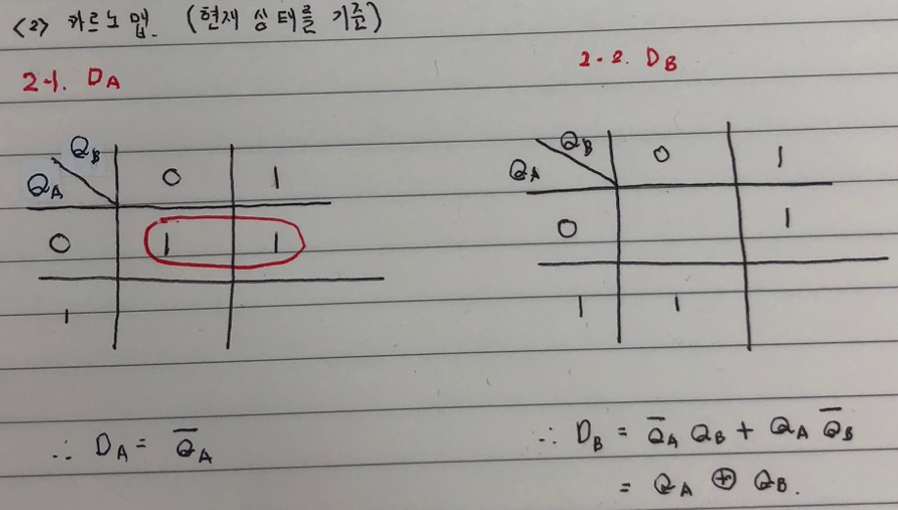 <2> 카르노 맵. (현재 상태를 기준)
2-1. D_A
Q_B
Q_A 0 1
0 1 1
1
∴ D_A = Q̅_A
2-2. D_B
Q_B
Q_A 0 1
0 1
1 1
∴ D_B = Q̅_A Q_B + Q_A Q̅_B
= Q_A ⊕ Q_B.